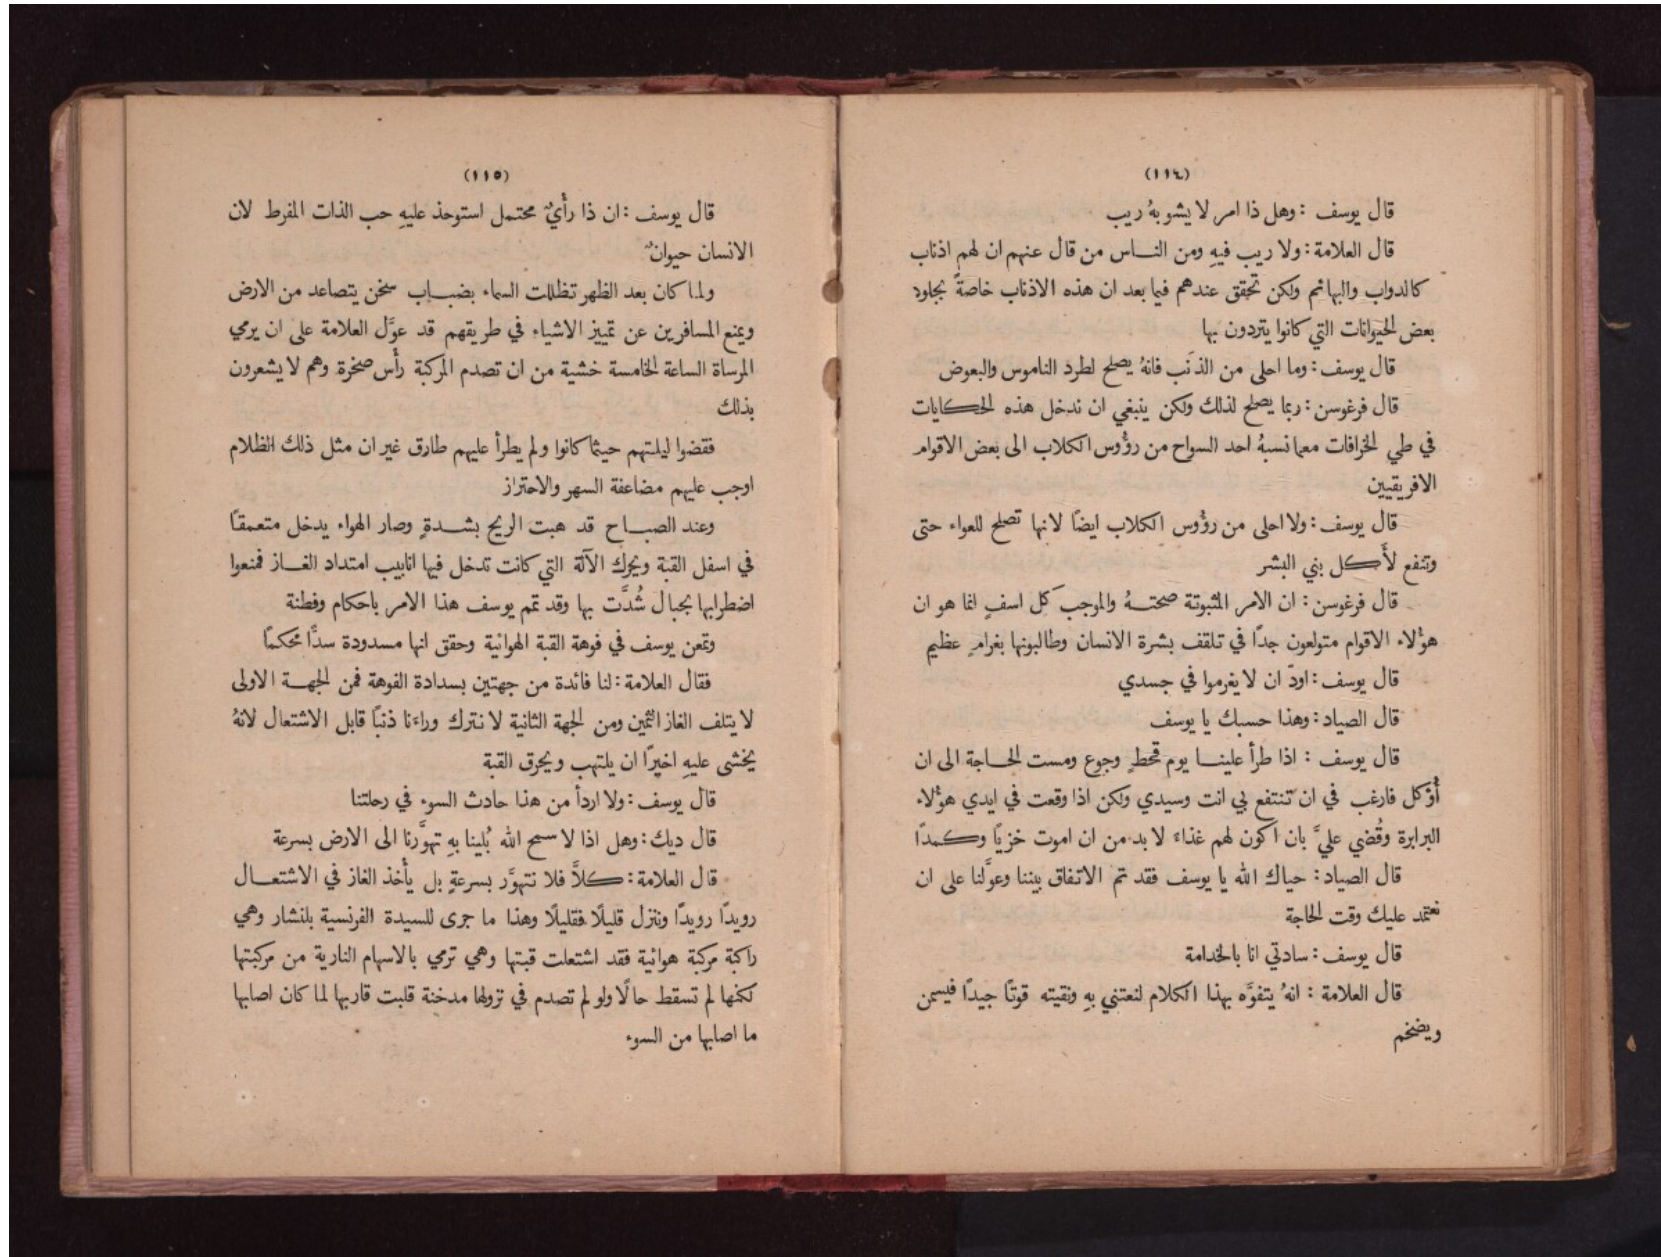 (١١٤)
قال يوسف : وهل ذا امر لا يشوبهُ ريب
قال العلامة : ولا ريب فيهِ ومن النـاس من قال عنهم ان لهم اذناب
كالدواب والبهائم ولكن تحقق عندهم فيما بعد ان هذه الاذناب خاصةً بجلود
بعض الحيوانات التي كانوا يتردون بها
قال يوسف : وما احلى من الذنَب فانهُ يصلح لطرد الناموس والبعوض
قال فرغوسن : ربما يصلح لذلك ولكن ينبغي ان ندخل هذه الحكايات
في طي الخرافات معما نسبهُ احد السواح من رؤُوس الكلاب الى بعض الاقوام
الافريقيين
قال يوسف : ولا احلى من رؤُوس الكلاب ايضًا لانها تصلح للعواء حتى
وتنفع لأَكل بني البشر
قال فرغوسن : ان الامر المثبوتة صحتـهُ والموجب كل اسفٍ انما هو ان
هوُلاء الاقوام متولعون جدًا في تلقف بشرة الانسان وطالبونها بغرامٍ عظيم
قال يوسف : اودّ ان لا يغرموا في جسدي
قال الصياد : وهذا حسبك يا يوسف
قال يوسف : اذا طرأ علينـا يوم قحطٍ وجوع ومست الحـاجة الى ان
أُوكل فارغب في ان تنتفع بي انت وسيدي ولكن اذا وقعت في ايدي هوُلاء
البرابرة وقُضي عليَّ بان اكون لهم غذاءً لا بد من ان اموت خزيًا وكمدًا
قال الصياد : حياك الله يا يوسف فقد تم الاتفاق بيننا وعوَّلنا على ان
نعتمد عليك وقت الحاجة
قال يوسف : سادتي انا بالخدامة
قال العلامة : انهُ يتفوَّه بهذا الكلام لنعتني بهِ ونقيته قوتًا جيدًا فيسمن
ويضخم
(١١٥)
قال يوسف : ان ذا رأْيٌ محتمل استوحذ عليهِ حب الذات المفرط لان
الانسان حيوانٌ
ولما كان بعد الظهر تظللت السماء بضبـاب سخن يتصاعد من الارض
ويمنع المسافرين عن تمييز الاشياء في طريقهم قد عوَّل العلامة على ان يرمي
المرساة الساعة الخامسة خشية من ان تصدم المركبة رأْس صخرة وهم لا يشعرون
بذلك
فقضوا ليلتهم حيثما كانوا ولم يطرأ عليهم طارق غير ان مثل ذلك الظلام
اوجب عليهم مضاعفة السهر والاحتراز
وعند الصبـاح قد هبت الريح بشـدةٍ وصار الهواء يدخل متعمقًا
في اسفل القبة ويحرك الآلة التي كانت تدخل فيها انابيب امتداد الغـاز فمنعوا
اضطرابها بحبال شُدَّت بها وقد تمم يوسف هذا الامر باحكام وفطنة
وتمعن يوسف في فوهة القبة الهوائية وحقق انها مسدودة سدًّا محكمًا
فقال العلامة : لنا فائدة من جهتين بسدادة الفوهة فمن الجهـة الاولى
لا يتلف الغاز الثمين ومن الجهة الثانية لا نترك وراءَنا ذنبًا قابل الاشتعال لانهُ
يخشى عليهِ اخيرًا ان يلتهب ويحرق القبة
قال يوسف : ولا اردأ من هذا حادث السوء في رحلتنا
قال ديك : وهل اذا لا سمح الله بُلينا بهِ تهوَّرنا الى الارض بسرعة
قال العلامة : كلاَّ فلا نتهوَّر بسرعةٍ بل يأْخذ الغاز في الاشتعـال
رويدًا رويدًا وننزل قليلًا فقليلًا وهذا ما جرى للسيدة الفرنسية بلنشار وهي
راكبة مركبة هوائية فقد اشتعلت قبتها وهي ترمي بالاسهام النارية من مركبتها
لكنها لم تسقط حالًا ولو لم تصدم في نزولها مدخنة قلبت قاربها لما كان اصابها
ما اصابها من السوء